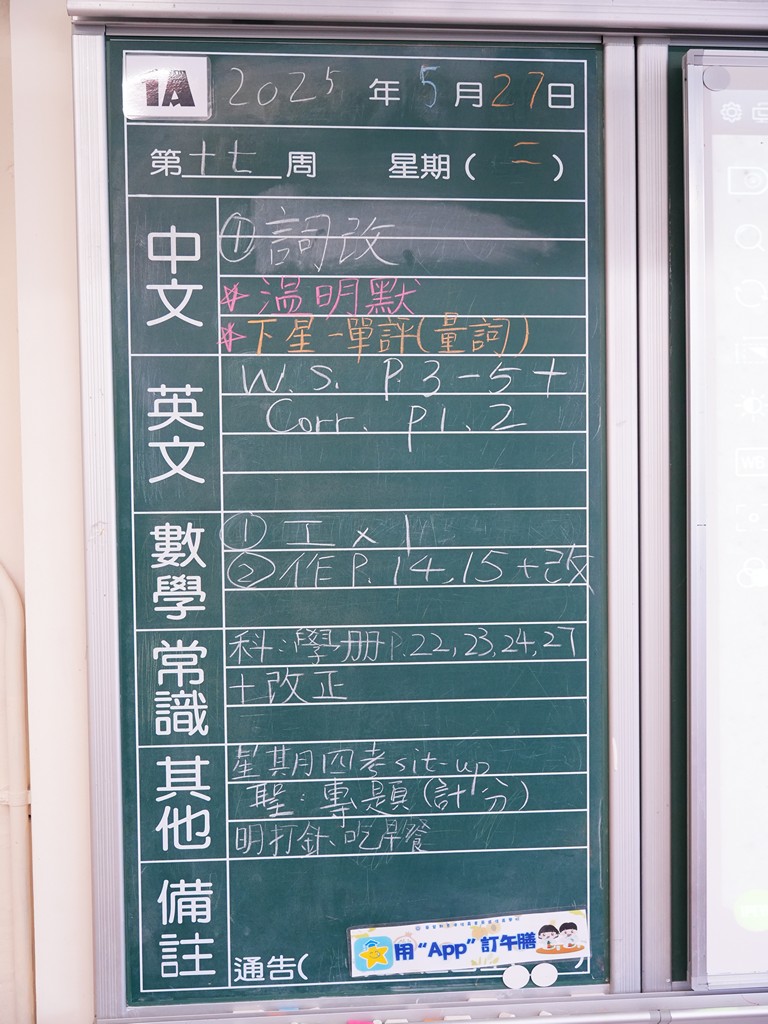 1A 2025年5月27日
第十七周 星期(二)
中文
①詞改
*温明默
*下星一單評(量詞)
英文
W.S. P.3-5+
Corr. p1.2
數學
①工x1
②作P.14,15+改
常識
科:學册P.22,23,24,27
+改正
其他
星期四考sit-up
聖:專題(計分)
明打針、吃早餐
備註
通告( )
用“App”訂午膳
WB